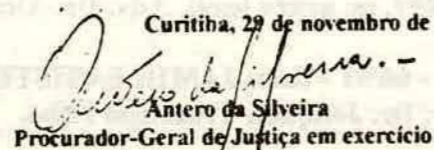 Curitiba, 29 de novembro de
Antero da Silveira
Procurador-Geral de Justiça em exercício